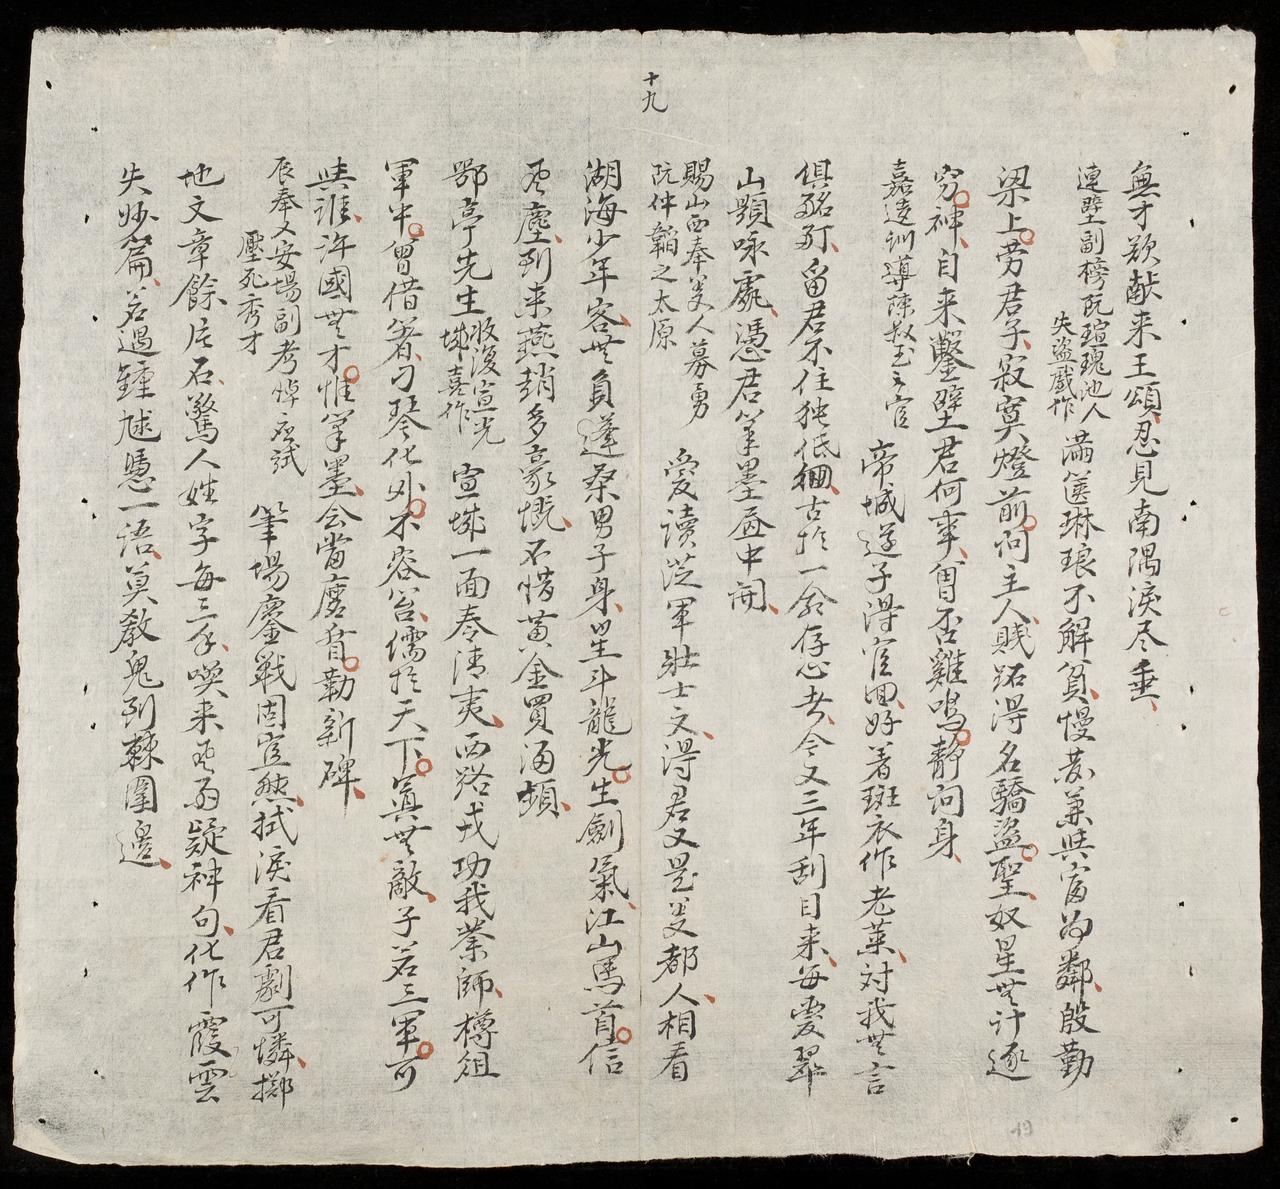 十九
無才欲献来王頌忍見南隅淚尽垂
連壁副榜阮瑄瑰池人
失盜戲作
滿篋琳琅不解貧慢藏兼與富為鄰殷勤
梁上劳君子寂寞燈前问主人賤跖得名驕盜聖奴星無计逐
穷神自来鑿壁君何事曾否雞鳴静问身
嘉遠训導陳叔玉之官
帝城遊子得官囬好着斑衣作老萊对我無言
俱酩酊留君不住独低徊古於一命存心者今又三年刮目来每爱翠
山顯咏處憑君筆墨届中開
賜山西奉差人募勇
阮仲韜之太原
愛讀從軍壯士文得君又是差都人相看
湖海少年客無負蓬桑男子身星斗龍光生劍氣江山馬首信
風塵到来燕趙多豪慨不惜黄金買酒頻
鄂亭先生
收復宣光
城嘉作
宣城一面奏清夷西路戎功我業師樽俎
軍中曾借箸刁琴化外不容笞儒於天下真無敵子若三軍可
與誰許國無才惟筆墨会當磨盾勒新碑
辰奉乂安場副考悼应試
壓死秀才
筆場鏖戰固宜然拭淚看君劇可憐擲
地文章餘片石驚人姓字每三年喫来風雨疑神句化作霞雲
失妙篇若過鍾馗憑一语莫教鬼到棘圍邊
19